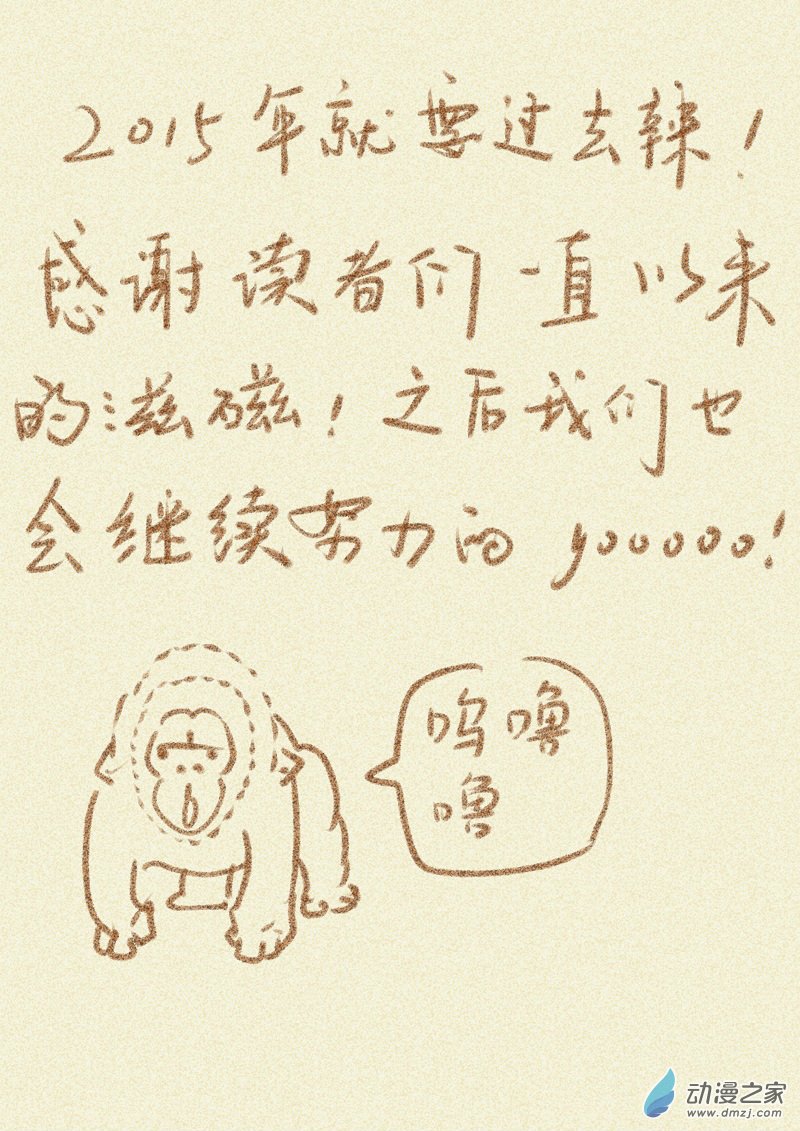 2015年就要过去辣!
感谢读者们一直以来
的滋磁!之后我们也
会继续努力的 yooooo!
呜噜
噜
动漫之家
www.dmzj.com